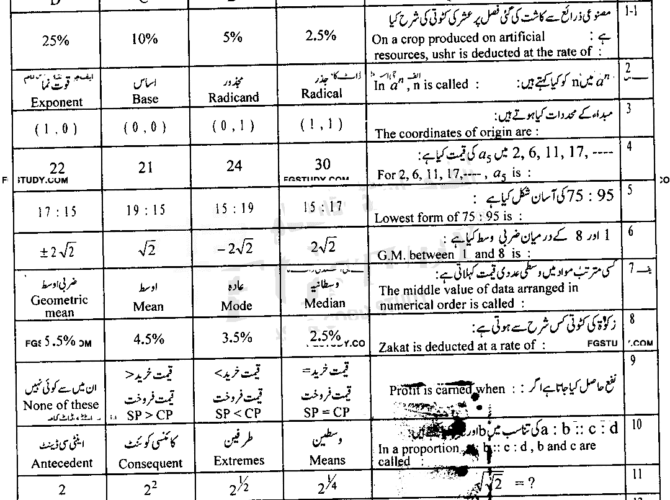 D C
25% 10% 5% 2.5% مصنوعی ذرائع سے کاشت کی گئی فصل پر عشر کی کٹوتی کی شرح کیا 1-1
ہے :
On a crop produced on artificial
resources, ushr is deducted at the rate of :
قوت نما اساس مجذور جذر aⁿ میں n کو کیا کہتے ہیں: 2
Exponent Base Radicand Radical In aⁿ , n is called :
(1,0) (0,0) (0,1) (1,1) مبداء کے محددات کیا ہوتے ہیں: 3
The coordinates of origin are :
22 21 24 30 2, 6, 11, 17, ---- میں a₅ کی قیمت کیا ہے: 4
For 2, 6, 11, 17,----, a₅ is :
STUDY.COM FGSTUDY.COM
17 : 15 19 : 15 15 : 19 15 : 17 75 : 95 کی آسان شکل کیا ہے : 5
Lowest form of 75 : 95 is :
±2√2 √2 −2√2 2√2 1 اور 8 کے درمیان ضربی وسط کیا ہے : 6
G.M. between 1 and 8 is :
ضربی اوسط اوسط عادہ وسطانیہ کسی مرتب مواد میں وسطی عددی قیمت کہلاتی ہے: 7
Geometric mean Mean Mode Median The middle value of data arranged in
numerical order is called :
5.5% 4.5% 3.5% 2.5% زکوٰۃ کی کٹوتی کس شرح سے ہوتی ہے: 8
Zakat is deducted at a rate of :
ان میں سے کوئی نہیں قیمت خرید> قیمت فروخت قیمت خرید< قیمت فروخت قیمت خرید= قیمت فروخت نفع حاصل کیا جاتا ہے اگر : 9
None of these SP > CP SP < CP SP = CP Profit is earned when :
اینٹی سی ڈینٹ کانسی کوئنٹ طرفین وسطین a : b :: c : d کی تناسب میں b اور 10
Antecedent Consequent Extremes Means In a proportion b :: c : d , b and c are
called :
2 2² 2^½ 2^¼ √√2 = ? 11